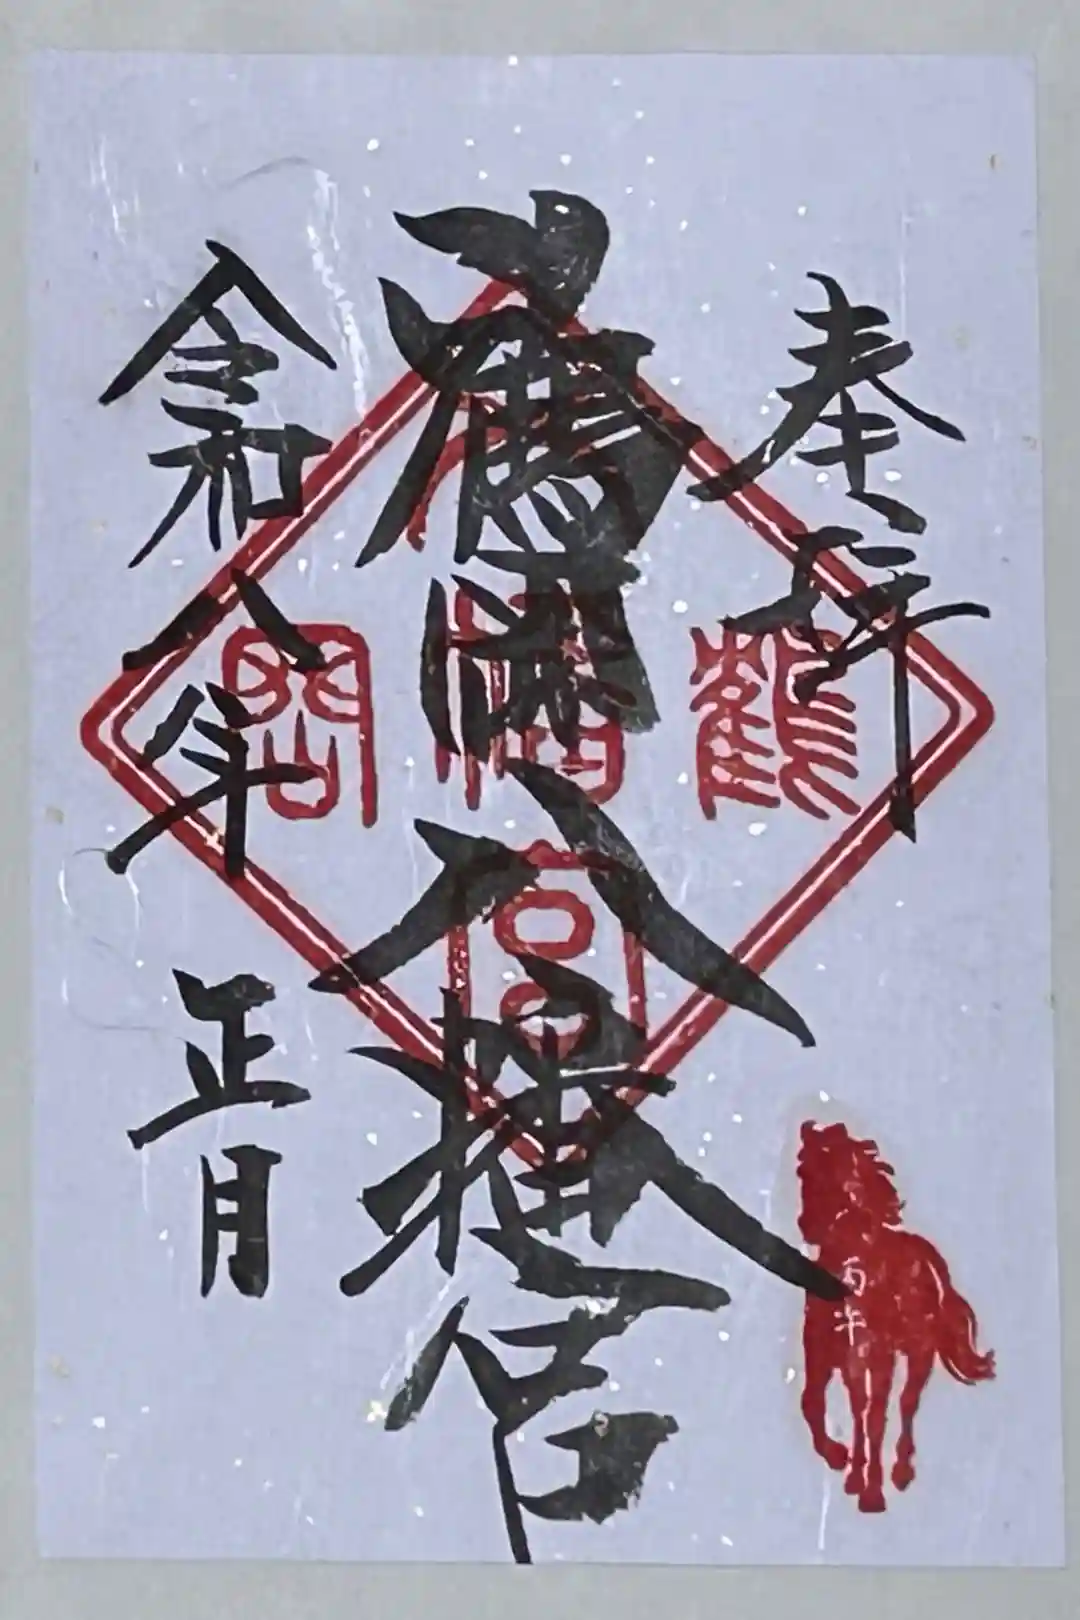 奉拝
鶴岡八幡宮
令和八年 正月
鶴岡
八幡宮
丙午